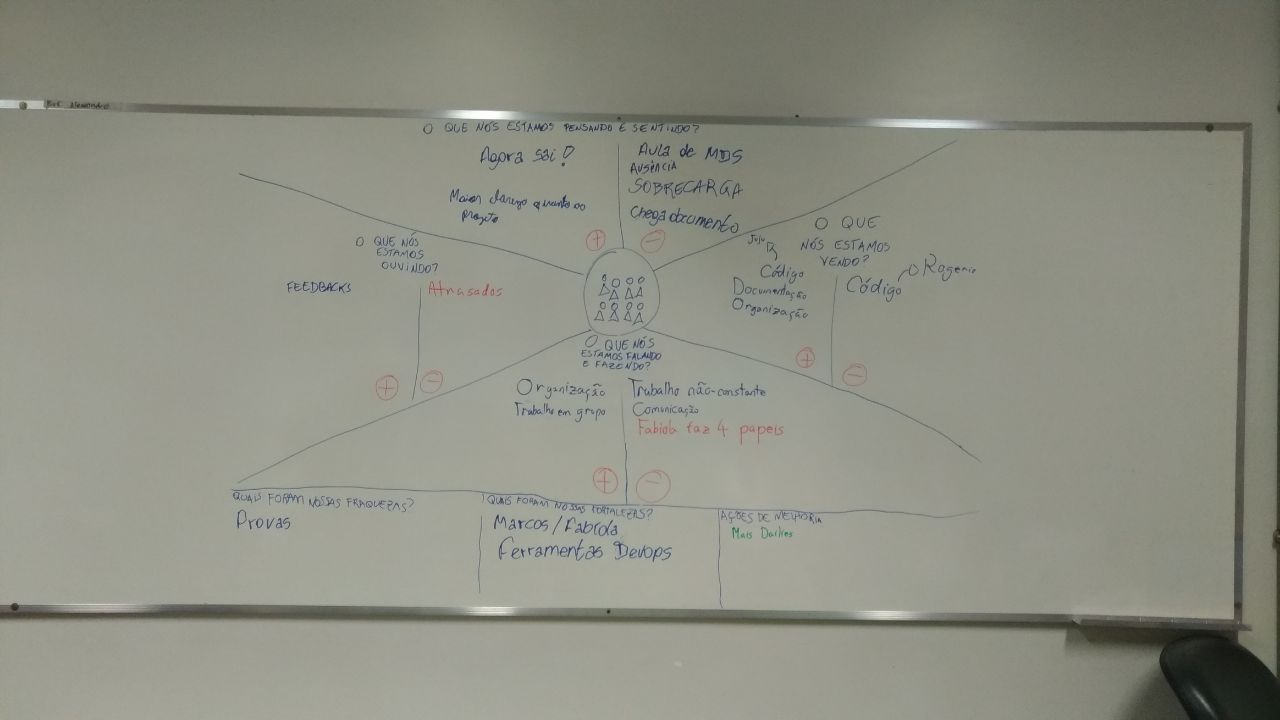 O QUE NÓS ESTAMOS PENSANDO E SENTINDO?
Agora sai!
Maior clareza quanto ao
projeto
Aula de MDS
AUSÊNCIA
SOBRECARGA
Chega documento
O QUE NÓS
ESTAMOS
OUVINDO?
FEEDBACKS
Atrasados
O QUE
NÓS ESTAMOS
VENDO?
Juju
Código
Documentação
Organização
Código
Rogerio
O QUE NÓS
ESTAMOS FALANDO
E FAZENDO?
Organização
Trabalho em grupo
Trabalho não-constante
Comunicação
Fabíola faz 4 papeis
QUAIS FORAM NOSSAS FRAQUEZAS?
Provas
QUAIS FORAM NOSSAS FORTALEZAS?
Marcos/Fabíola
Ferramentas Devops
AÇÕES DE MELHORIA
Mais Dailies